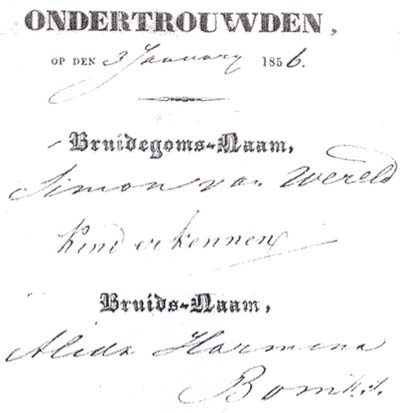 ONDERTROUWDEN,
OP DEN 3 January 1856.
Bruidegoms-Naam,
Simon van Wereld
Kind erkennen
Bruids-Naam,
Alida Harmina